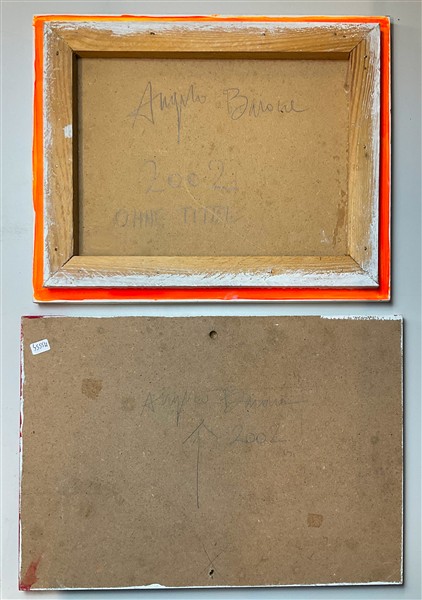 Angelo Barone
2002
OHNE TITEL
Angelo Barone
2002